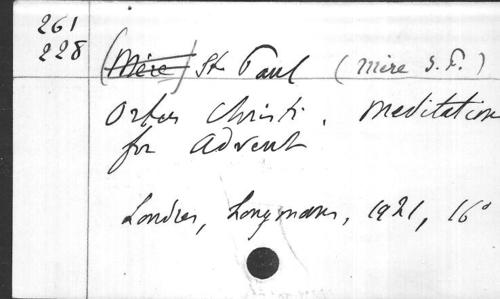 261
228
(Mère) St Paul (Mère S. P.)
Ortus Christi. Meditation
for Advent
Londres, Longmans, 1921, 16°